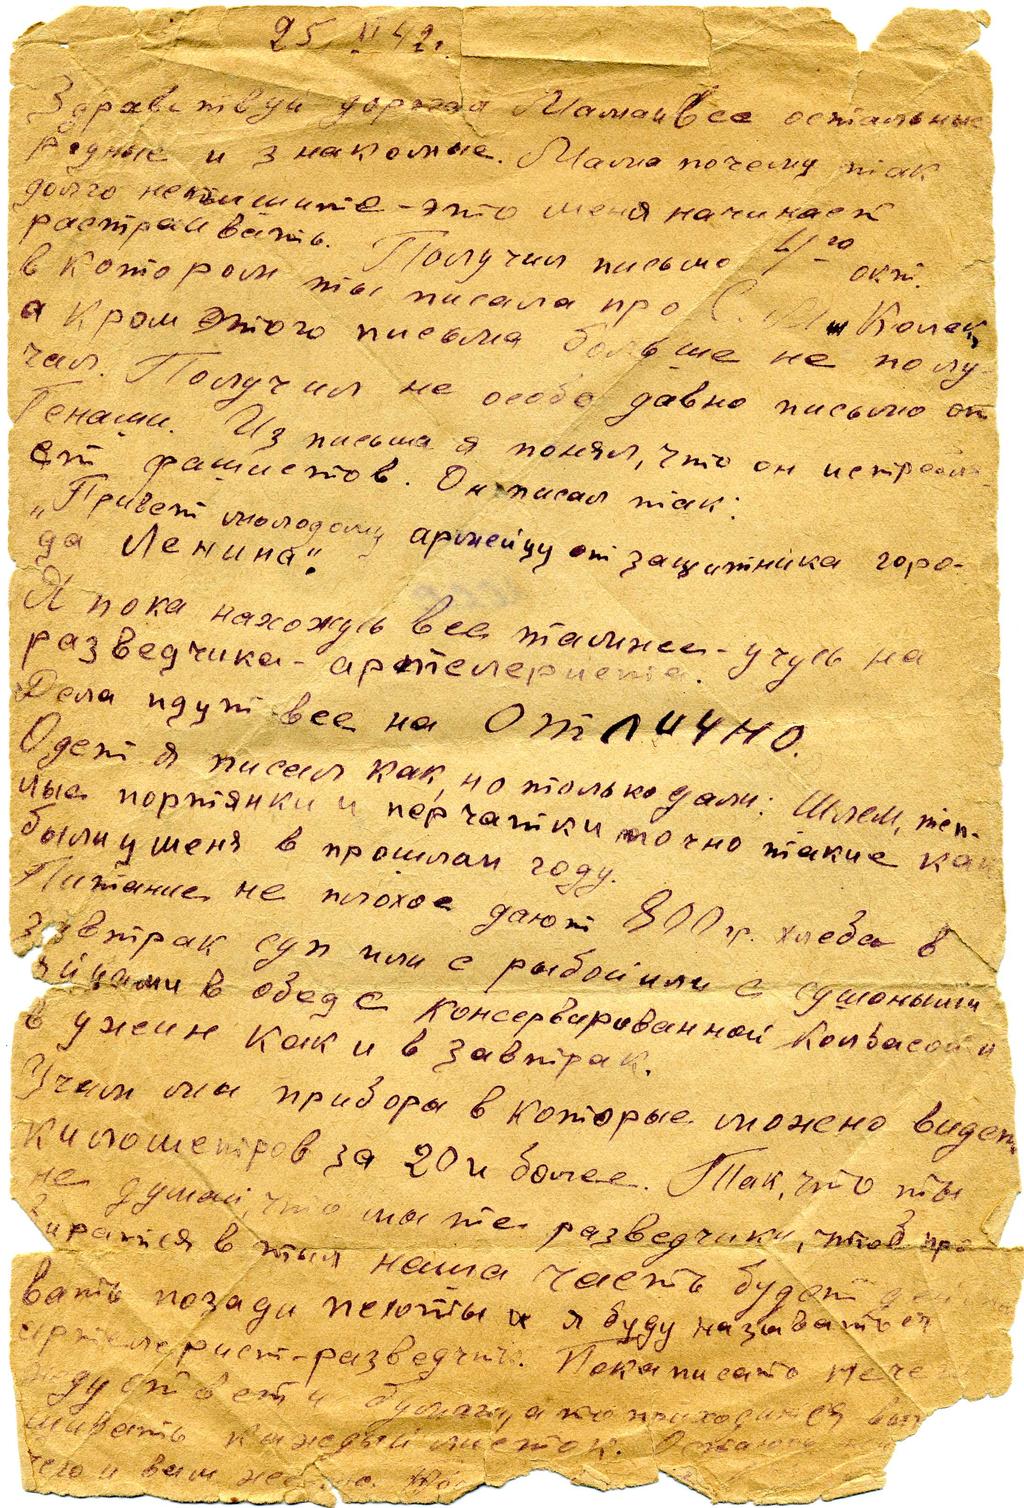 25 XI 42.
Здравствуй дорогая Мама и все остальные
родные и знакомые. Мама почему так
долго непишите - это меня начинает
растраивать. Получил письмо 4-го окт.
в котором ты писала про С. и Колек,
а кром этого письма больше не полу-
чал. Получил не особо давно письмо от
Генаши. Из письма я понял, что он истребля-
ет фашистов. Он писал так:
„Привет молодому армейцу от защитника горо-
да Ленина".
Я пока нахожусь все тамже - учусь на
разведчика - артелериста.
Дела идут все на Отлично.
Одет я писал как, но только дали: Шлем, теп-
лые портянки и перчатки точно такие как
были у меня в прошлам году.
Питание не плохое дают 800 гр. хлеба в
завтрак суп или с рыбой или с сушоными
яйцами в обед с консервированной колбасой и
в ужин как и в завтрак.
Учим мы приборы в которые можено видеть
километров за 20 и более. Так, что ты
не думай, что мы те разведчики, чтоб про
бираться в тыл наша часть будет
вать позади пехоты и я буду называться
артелерист-разведчик. Пока писать нече
жду ответ и бумаги, а то приходится вып
шивать каждый листок. Остаюсь
чего и вам